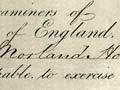 xaminers of
of England.
Morland Ho
hable, to exercise